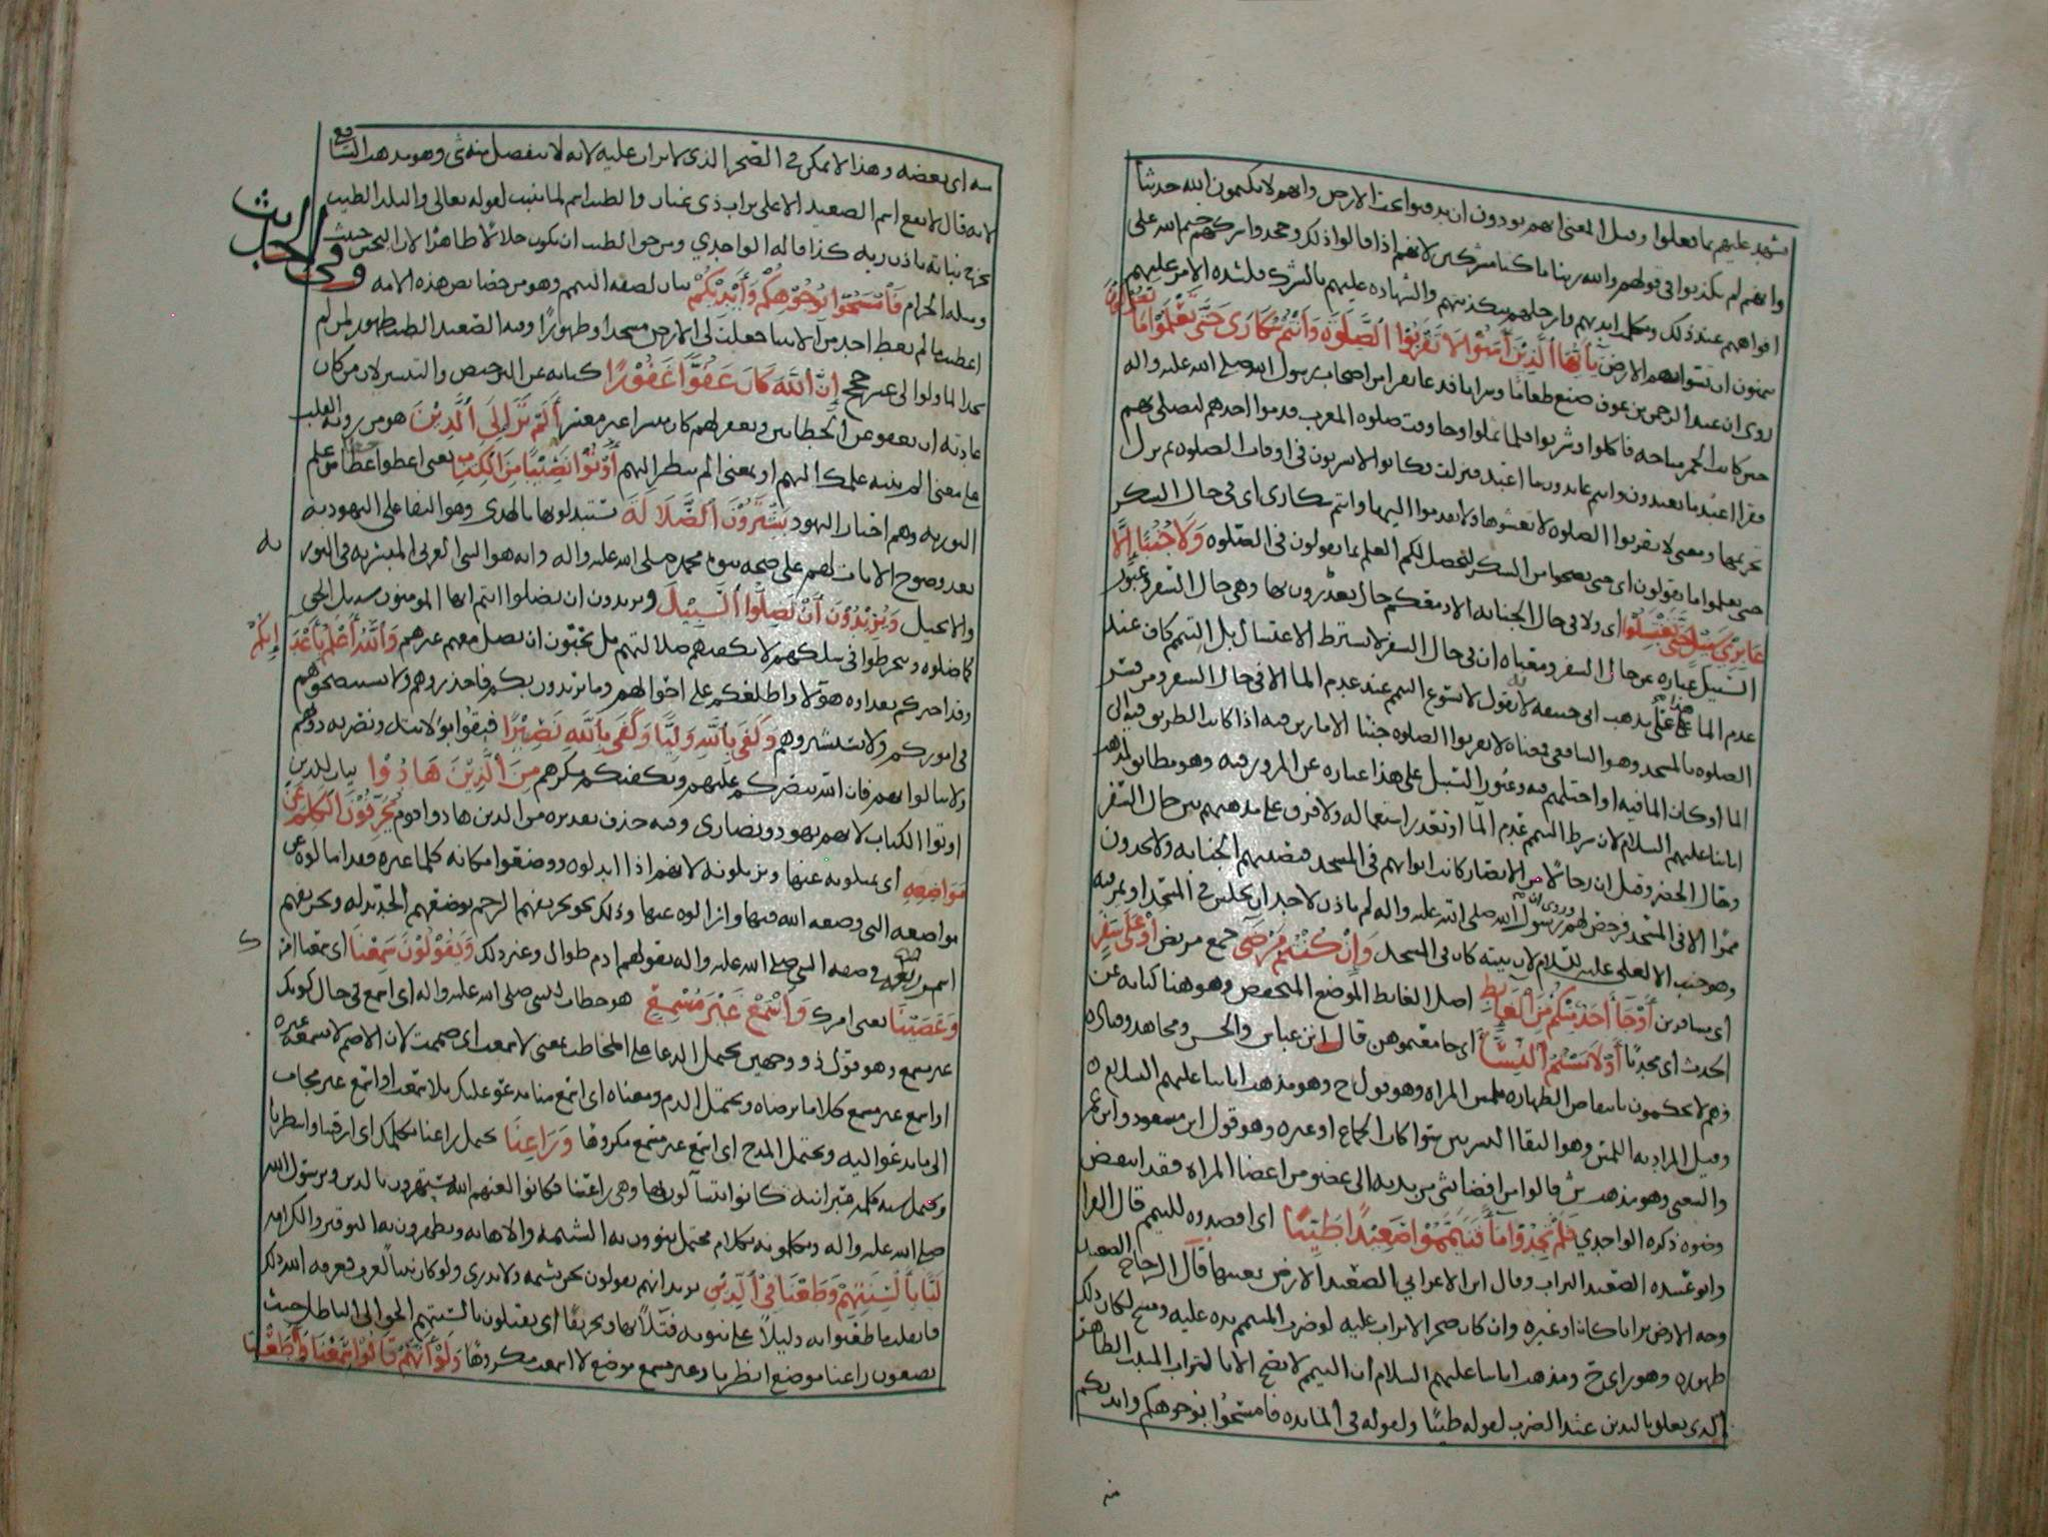 يشهد عليهم بما فعلوا وقيل المعنى انهم يودون ان يدفنوا تحت الارض وانهم لا يكتمون الله حديثا
وانهم لم يكذبوا في قولهم والله ربنا ما كنا مشركين لانهم اذا قالوا ذلك وجحدوا شركهم ختم الله على
افواههم عند ذلك وتكلمت ايديهم وارجلهم بتكذيبهم والشهادة عليهم بالشرك فلشدة الامر عليهم
يتمنون ان تسوى بهم الارض يَا أَيُّهَا الَّذِينَ آمَنُوا لَا تَقْرَبُوا الصَّلَوٰةَ وَأَنْتُمْ سُكَارَى حَتَّى تَعْلَمُوا مَا تَقُولُونَ
روي ان عبد الرحمن بن عوف صنع طعاما وشرابا فدعا نفرا من اصحاب رسول الله صلى الله عليه واله
حين كانت الخمر مباحة فاكلوا وشربوا فلما ثملوا وجا وقت صلوة المغرب قدموا احدهم ليصلي بهم
فقرا اعبد ما تعبدون وانتم عابدون ما اعبد فنزلت وكانوا لا يشربون في اوقات الصلوة ثم نزل
تحريمها ومعنى لا تقربوا الصلوة لا تغشوها ولا تقدموا اليها وانتم سكارى اي في حال السكر
حتى تعلموا ما تقولون اي حتى تصحوا من السكر لتحصل لكم العلم بما تقولون في الصلوة وَلَا جُنُبًا إِلَّا
عَابِرِي سَبِيلٍ حَتَّى تَغْتَسِلُوا اي ولا في حال الجنابة الا ومعكم حال تعذرون بها وهي حال السفر وعبور
السبيل عبارة عن حال السفر ومعناه ان في حال السفر لا يشترط الاغتسال بل التيمم كاف عند
عدم الما هذا على مذهب ابي حنيفة لانه يقول لا يسوغ التيمم عند عدم الما الا في حال السفر ومن فسر
الصلوة بالمسجد وهو الشافعي فمعناه لا تقربوا الصلوة جنبا الا مارين فيه اذا كان الطريق فيه الى
الما او كان الما فيه او احتلمتم فيه وعبور السبيل على هذا عبارة عن المرور فيه وهو مطابق لمذهب
ائمتنا عليهم السلام لان شرط التيمم عدم الما او تعذر استعماله ولا فرق على مذهبهم بين حال السفر
وحال الحضر وقيل ان رجالا من الانصار كانت ابوابهم في المسجد فتصيبهم الجنابة ولا يجدون
ممرا الا في المسجد فرخص لهم وروي ان رسول الله صلى الله عليه واله لم ياذن لاحد ان يجلس في المسجد او يمر فيه
وهو جنب الا لعلي عليه السلام لان بيته كان في المسجد وَإِنْ كُنْتُمْ مَرْضَى جمع مريض أَوْ عَلَى سَفَرٍ
اي مسافرين أَوْ جَاءَ أَحَدٌ مِنْكُمْ مِنَ الْغَائِطِ اصل الغائط الموضع المنخفض وهو هنا كناية عن
الحدث اي محدثا أَوْ لَامَسْتُمُ النِّسَاءَ اي جامعتموهن قال ابن عباس والحسن ومجاهد وقتادة
فهم لا يحكمون بانتقاض الطهارة بلمس المراة وهو قول ح وهو مذهب ائمتنا عليهم السلام
وقيل المراد به اللمس وهو التقا البشرتين سوا كان الجماع او غيره وهو قول ابن مسعود وابن عمر
والنخعي وهو مذهب ش قالوا من افضا بشي من بدنه الى عضو من اعضا المراة فقد انتقض
وضوه ذكره الواحدي فَلَمْ تَجِدُوا مَاءً فَتَيَمَّمُوا صَعِيدًا طَيِّبًا اي اقصدوه للتيمم قال الفرا
وابو عبيده الصعيد التراب وقال ابن الاعرابي الصعيد الارض بعينها قال الزجاج الصعيد
وجه الارض ترابا كان او غيره وان كان صخرا لا تراب عليه لو ضرب المتيمم يده عليه ومسح لكان ذلك
طهوره وهو راي ح ومذهب ائمتنا عليهم السلام ان التيمم لا يصح الا بالتراب المنبت الطاهر
الذي يعلق باليدين عند الضرب لقوله طيبا ولقوله في المائدة فامسحوا بوجوهكم وايديكم
منه
منه اي بعضه وهذا لا يمكن في الصخر الذي لا تراب عليه لانه لا ينفصل منه شي وهو مذهب الشافعي
لانه قال لا يقع اسم الصعيد الا على تراب ذي غبار والطيب اسم لما ينبت لقوله تعالى والبلد الطيب
يخرج نباته باذن ربه كذا قاله الواحدي ومن حق الطيب ان يكون حلالا طاهرا لان النجس خبيث
ومثله الحرام فَامْسَحُوا بِوُجُوهِكُمْ وَأَيْدِيكُمْ بيان لصفة التيمم وهو من خصائص هذه الامة وفي الحديث
اعطيت ما لم يعط احد من الانبيا جعلت لي الارض مسجدا وطهورا وفيه الصعيد الطيب طهور لمن لم
يجد الما ولو الى عشر حجج إِنَّ اللَّهَ كَانَ عَفُوًّا غَفُورًا كناية عن الترخيص والتيسير لان من كان
عادته ان يعفو عن الخطائين ويغفر لهم كان ميسرا غير معسر أَلَمْ تَرَ إِلَى الَّذِينَ هو من روية القلب
على معنى الم ينته علمك اليهم او بمعنى الم تنظر اليهم أُوتُوا نَصِيبًا مِنَ الْكِتَابِ يعني اعطوا حظا من علم
التورية وهم احبار اليهود يَشْتَرُونَ الضَّلَالَةَ يستبدلونها بالهدى وهو البقا على اليهودية
بعد وضوح الايات لهم على صحة نبوة محمد صلى الله عليه واله وانه هو النبي العربي المبشر به في التورية
والانجيل وَيُرِيدُونَ أَنْ تَضِلُّوا السَّبِيلَ ويريدون ان تضلوا انتم ايها المومنون سبيل الحق
كما ضلوه وتنخرطوا في سلكهم لا تكفيهم ضلالتهم بل يحبون ان يضل معهم غيرهم وَاللَّهُ أَعْلَمُ بِأَعْدَائِكُمْ
وقد اخبركم بعداوة هؤلا واطلعكم على احوالهم وما يريدون بكم فاحذروهم ولا تستنصحوهم
في اموركم ولا تستشيروهم وَكَفَى بِاللَّهِ وَلِيًّا وَكَفَى بِاللَّهِ نَصِيرًا فثقوا بولايته ونصرته دونهم
ولا تبالوا بهم فان الله ينصركم عليهم ويكفيكم مكرهم مِنَ الَّذِينَ هَادُوا بيان للذين
اوتوا الكتاب لانهم يهود ونصارى وفيه حذف تقديره من الذين هادوا قوم يُحَرِّفُونَ الْكَلِمَ عَنْ
مَوَاضِعِهِ اي يميلونه عنها ويزيلونه لانهم اذا ابدلوه ووضعوا مكانه كلما غيره فقد امالوه عن
مواضعه التي وضعه الله فيها وازالوه عنها وذلك نحو تحريفهم الرجم بوضعهم الحد بدله وتحريفهم
اسمر ربعه في صفة النبي صلى الله عليه واله بقولهم ادم طوال وغير ذلك وَيَقُولُونَ سَمِعْنَا اي سمعنا قولك
وَعَصَيْنَا يعني امرك وَاسْمَعْ غَيْرَ مُسْمَعٍ هو خطاب للنبي صلى الله عليه واله اي اسمع في حال كونك
غير مسمع وهو قول ذو وجهين يحتمل الدعا على المخاطب بمعنى لا سمعت اي صممت لان الاصم لا يسمعه غيره
او اسمع غير مسمع كلاما ترضاه ويحتمل الذم ومعناه اي اسمع منا مدعو عليك بلا سمعت او اسمع غير مجاب
الى ما تدعوا اليه ويحتمل المدح اي اسمع غير مسمع مكروها وَرَاعِنَا يحتمل راعنا نكلمك اي ارقبنا وانتظرنا
ويحتمل شبه كلمة عبرانية كانوا يتسابون بها وهي راعينا فكانوا لعنهم الله يستهزون بالدين وبرسول الله
صلى الله عليه واله ويكلمونه بكلام محتمل ينوون به الشتيمة والاهانة ويظهرون به التوقير والاكرام
لَيًّا بِأَلْسِنَتِهِمْ وَطَعْنًا فِي الدِّينِ يريد انهم يقولون نحن نشتمه ولا يدري ولو كان نبيا لعرف فعرفه الله ذلك
فانقلب ما طعنوا به دليلا على نبوته فتلا بها وتحريفا اي يفتلون بالسنتهم الحق الى الباطل حيث
يضعون راعنا موضع انظرنا وغير مسمع موضع لا اسمعت مكروها وَلَوْ أَنَّهُمْ قَالُوا سَمِعْنَا وَأَطَعْنَا